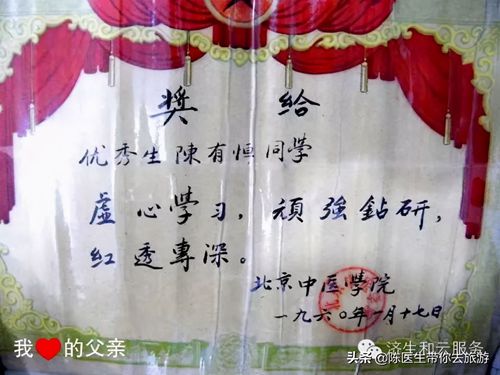 奬给
优秀生陳有恒同学
虚心學习，頑強鉆研，
紅透專深。
北京中医學院
一九六〇年一月十七日
我❤的父亲
济生和云服务
头条 @陈医生带你去旅游